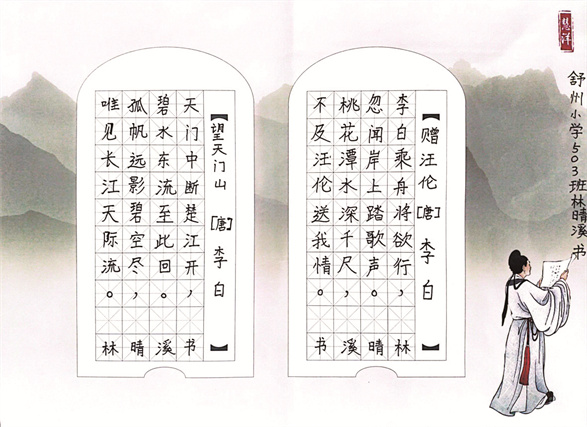 舒州小学503班林晴溪 书
【赠汪伦 [唐] 李白】
李白乘舟将欲行,
忽闻岸上踏歌声。
桃花潭水深千尺,
不及汪伦送我情。
林晴溪书
【望天门山 [唐] 李白】
天门中断楚江开,
碧水东流至此回。
孤帆远影碧空尽,
唯见长江天际流。
林晴溪书